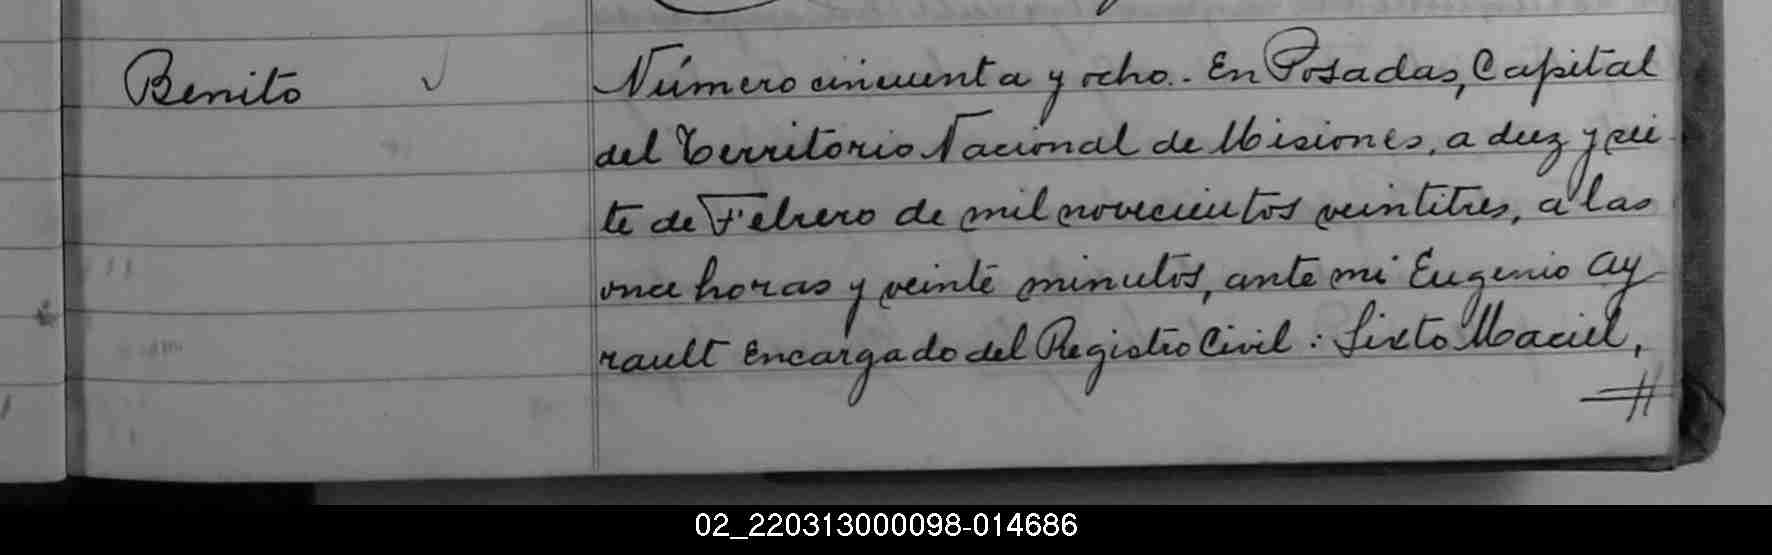 Benito
Número cincuenta y ocho. En Posadas, Capital
del Territorio Nacional de Misiones, a diez y sie-
te de Febrero de mil novecientos veintitres, a las
once horas y veinte minutos, ante mi Eugenio Ay
rault Encargado del Registro Civil: Sixto Maciel,
02_220313000098-014686